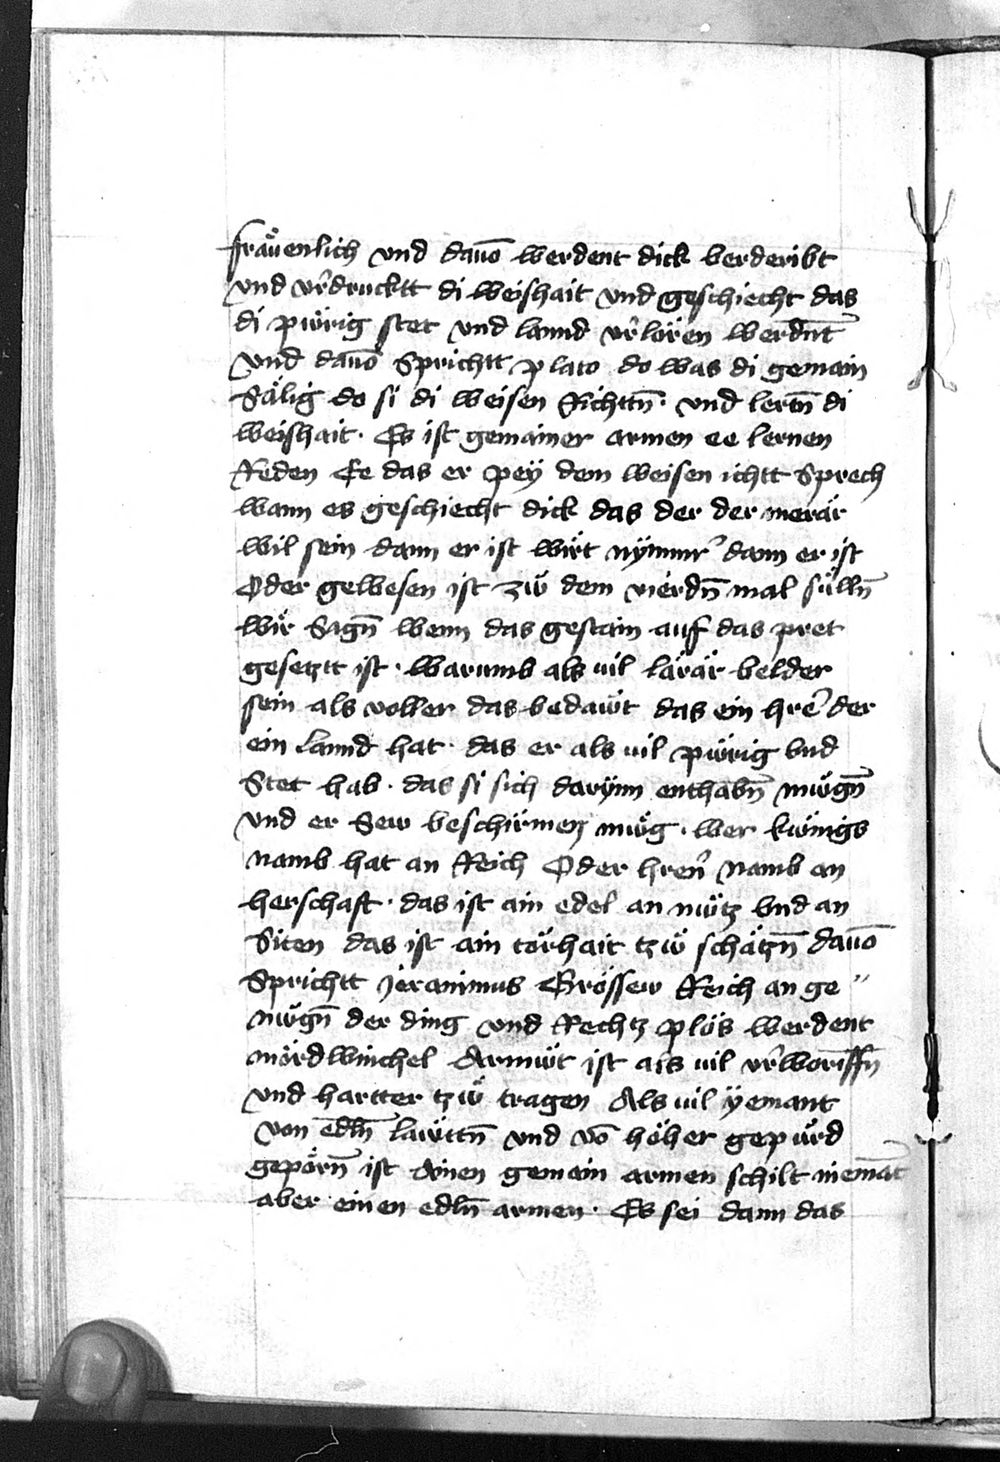 fräuenlich vnd dauō werdent dick verderibt
vnd vr̄drucktt di weishait vnd geschiecht das
di pürig stet vnd lannd vr̄lören werdn̄t
vnd dauō Sprichtt plato do was di gemain
Sälig do si di weisen Richttn̄ · vnd lertn̄ di
weishait · Es ist gemainer armen ee lernen
Reden Ee das er peÿ dem weisen ichtt Sprech
wann es geschiecht dick das der der merär
wil sein dann er ist wirt nÿmmr̄ dann er ist
Oder gewesen ist zw̋ dem vierdn̄ mal sülln̄
wir Sagn̄ wenn das gestain auf das pret
gesetztt ist · warumb als uil lärär velder
sein als voller das bedaẅt das ein hrē der
ein lannd hat · das er als uil pẅrig vnd
Stet hab · das si sich darÿnn enthabn̄ mẅgn̄
vnd er Sew beschirmen mẅg · wer kẅnigs
namb hat an Reich Oder hren̄ namb an
herschaft · das ist ain edel an nẅtz vnd an
Siten das ist ain torhait tzẅ schätzn̄ dauō
Sprichtt Jeranimus Grösser Reich an ge〃
nẅgn̄ der ding vnd Rechtz plös werdent
mördwinchel Armẅt ist als uil vr̄woriffn̄
vnd hartter tzẅ tragen Als uil ÿemant
von edln̄ laẅttn̄ vnd vō höher gepẅrd
gepörn̄ ist Ainen gemain armen schilt niemāt
aber einen edln̄ armen · Es sei dann das